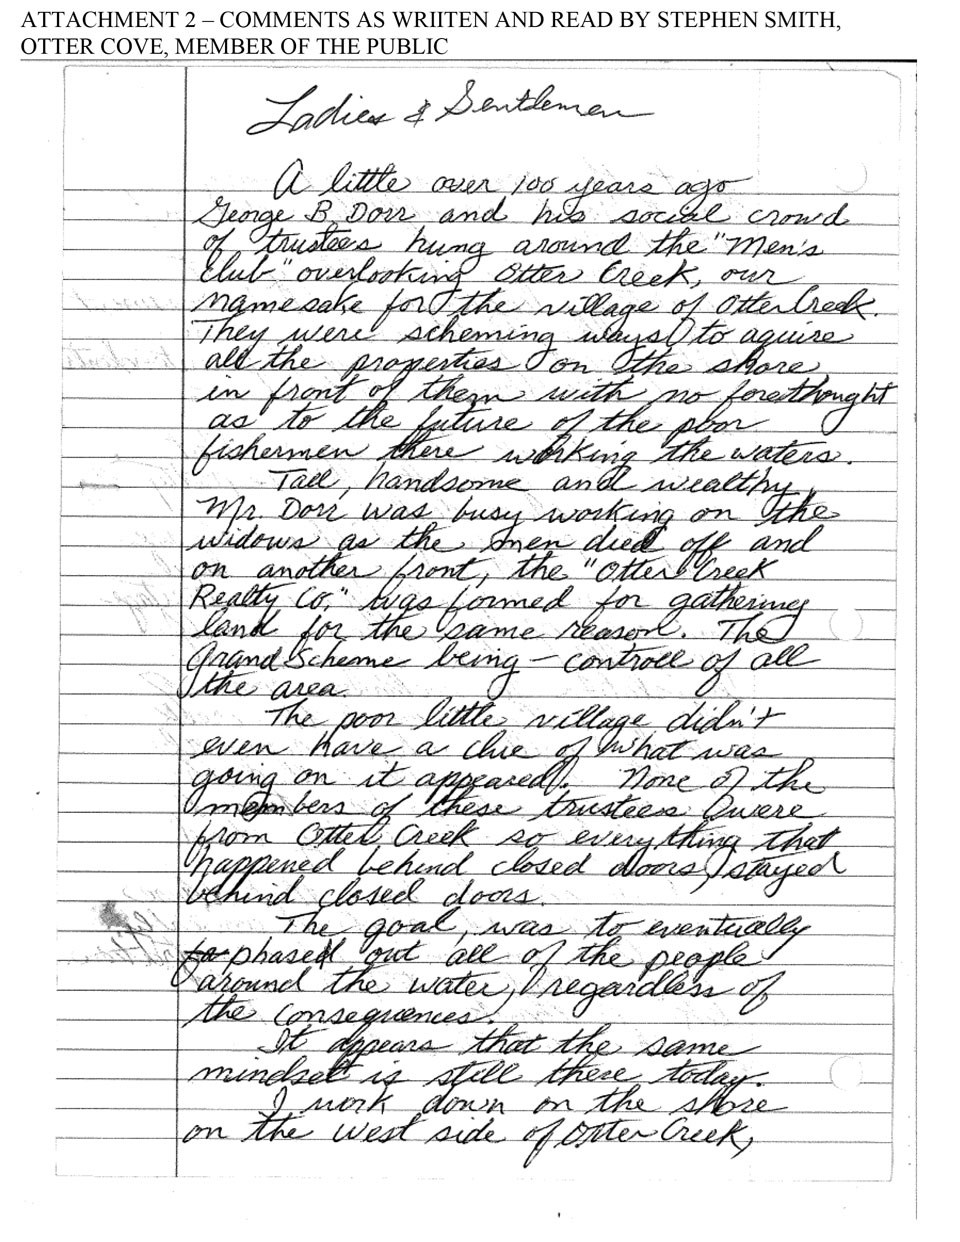 ATTACHMENT 2 – COMMENTS AS WRIITEN AND READ BY STEPHEN SMITH,
OTTER COVE, MEMBER OF THE PUBLIC
Ladies & Gentlemen
A little over 100 years ago
George B Dorr and his social crowd
of trustees hung around the "Men's
Club" overlooking Otter Creek, our
namesake for the village of Otter Creek.
They were scheming ways to aquire
all the properties on the shore
in front of them with no forethought
as to the future of the poor
fishermen there working the waters.
Tall, handsome and wealthy,
Mr. Dorr was busy working on the
widows as the men died off and
on another front, the "Otter Creek
Realty Co," was formed for gathering
land for the same reason. The
Grand Scheme being – controll of all
the area.
The poor little village didn't
even have a clue of what was
going on it appeared. None of the
members of these trustees were
from Otter Creek so everything that
happened behind closed doors, stayed
behind closed doors.
The goal, was to eventually
phased out all of the people
around the water, regardless of
the consequences.
It appears that the same
mindset is still there today.
I work down on the shore
on the west side of Otter Creek,